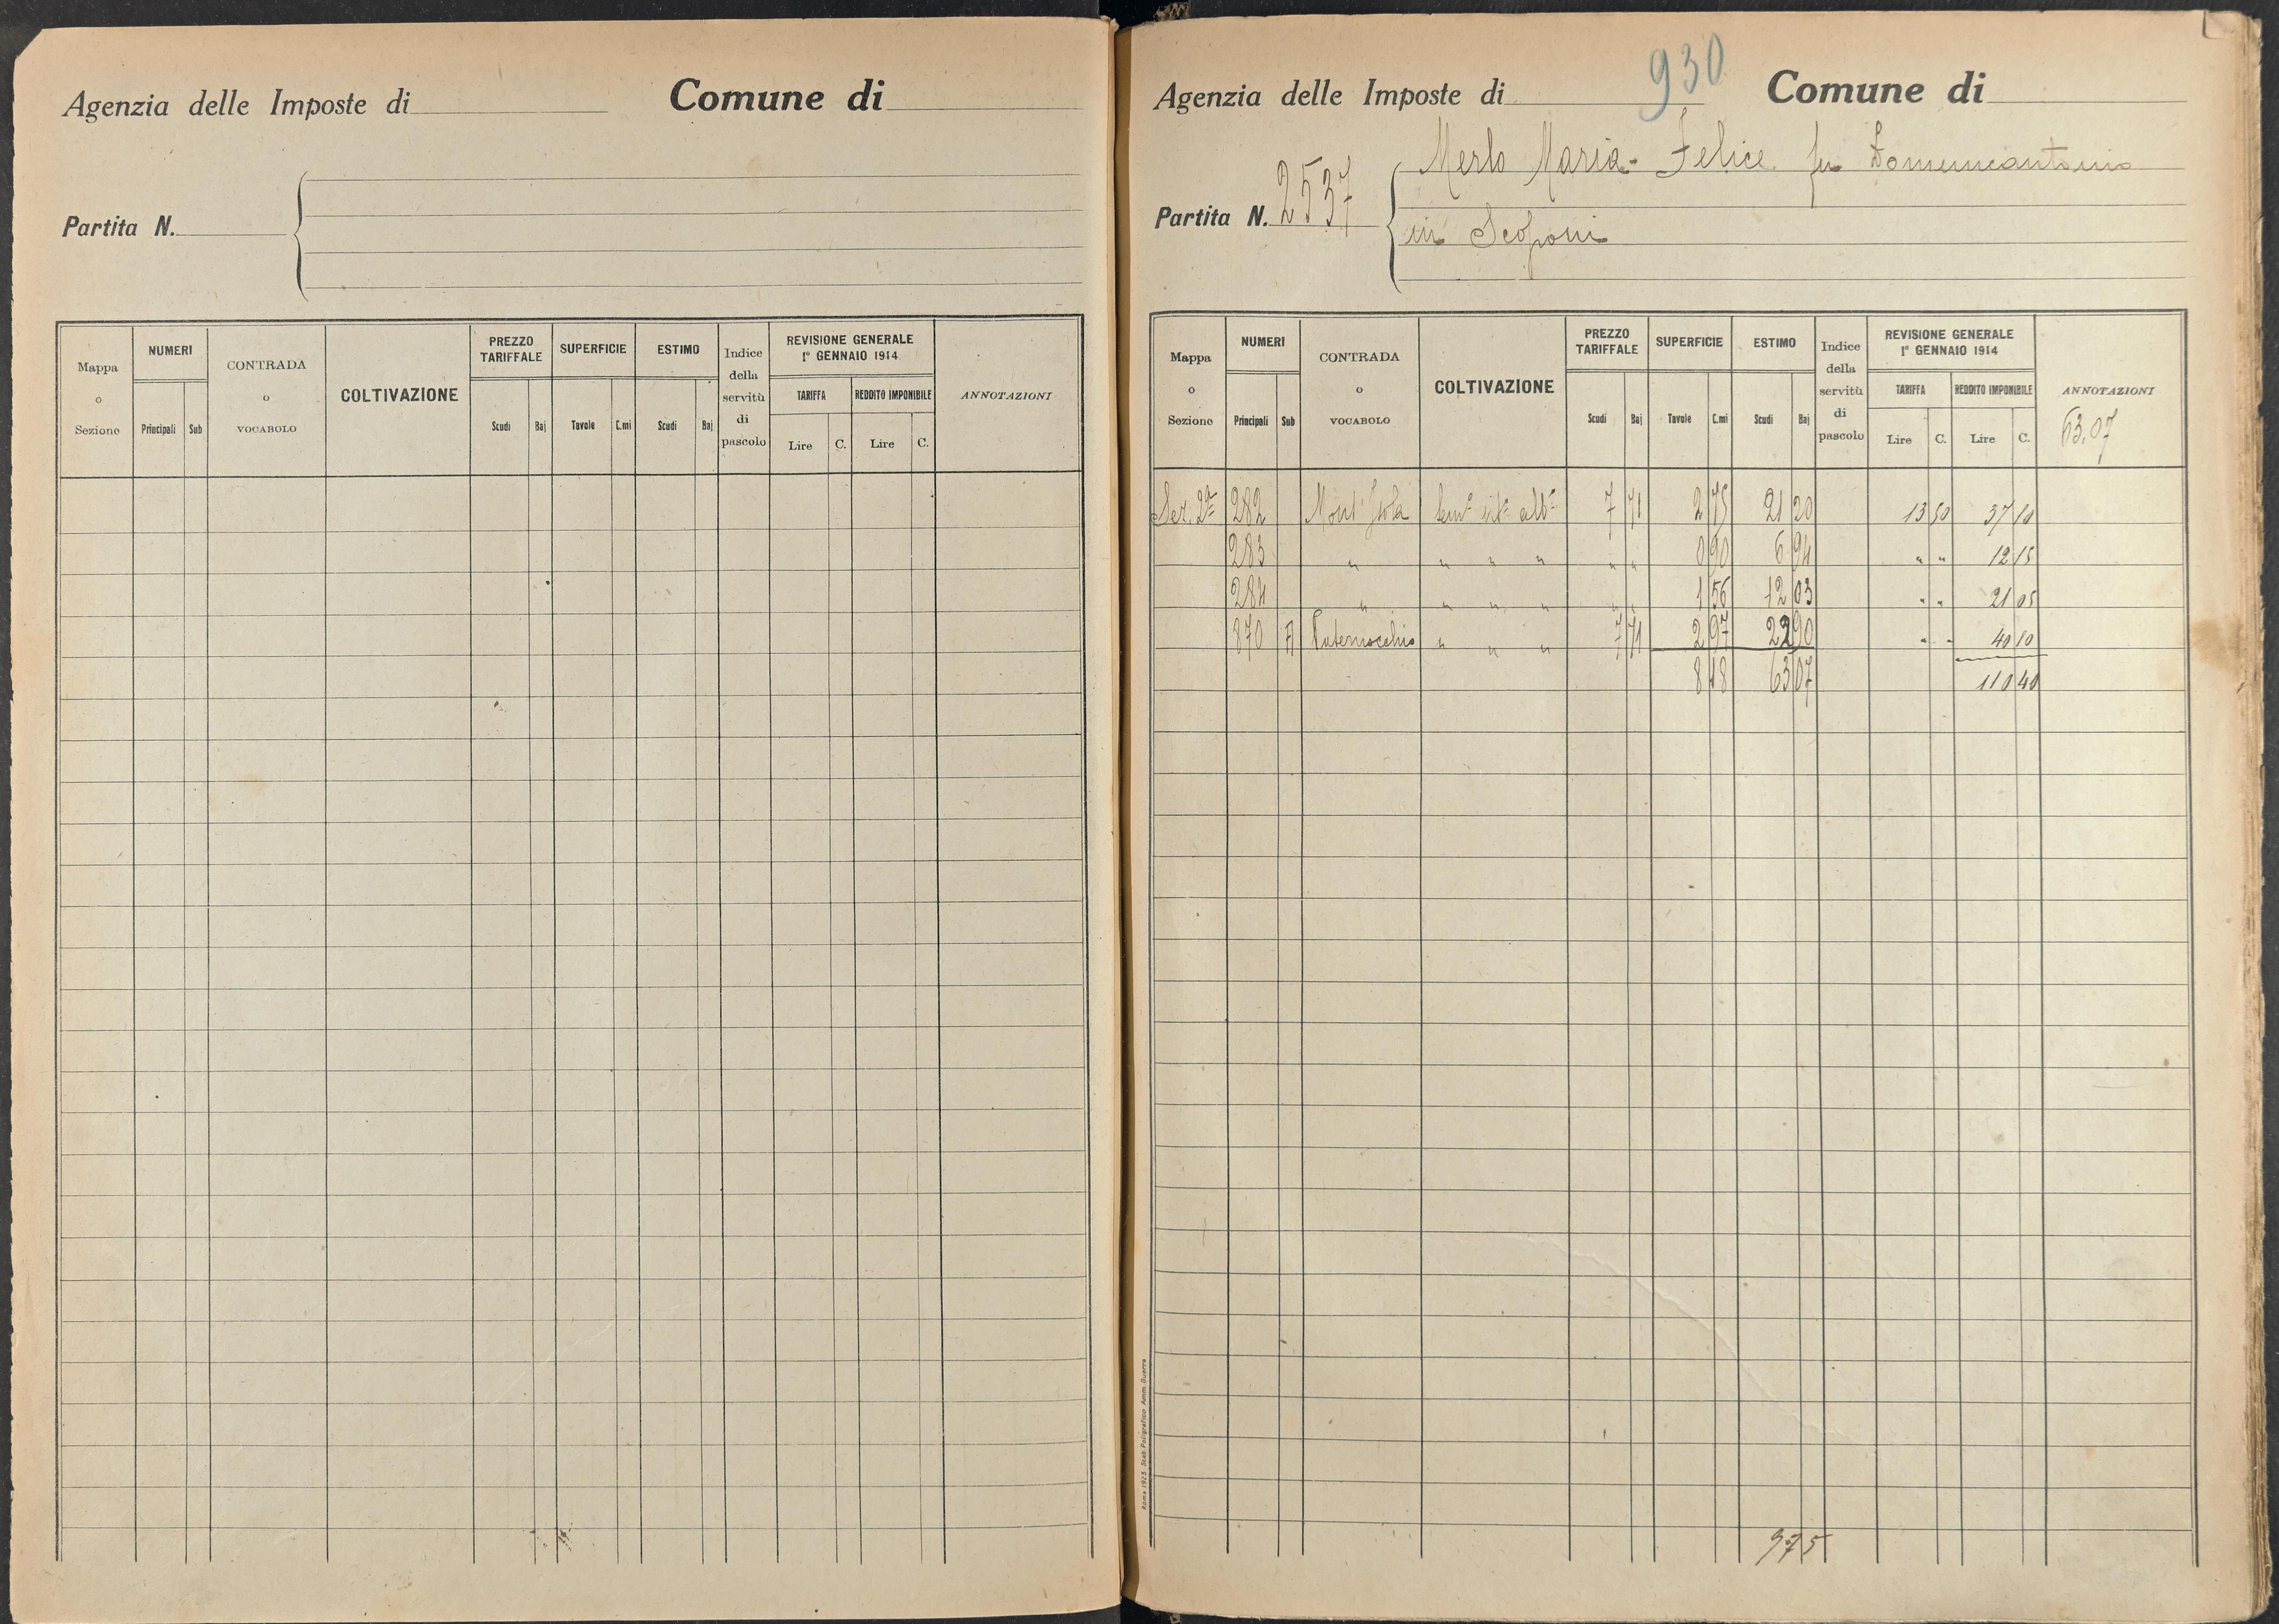 Agenzia delle Imposte di
Comune di
Partita N.
Mappa o Sezione
NUMERI
Principali
Sub
CONTRADA o VOCABOLO
COLTIVAZIONE
PREZZO TARIFFALE
Scudi
Baj
SUPERFICIE
Tavole
C.mi
ESTIMO
Scudi
Baj
Indice della servitù di pascolo
REVISIONE GENERALE
1° GENNAIO 1914
TARIFFA
REDDITO IMPONIBILE
Lire
C.
Lire
C.
ANNOTAZIONI
930
Agenzia delle Imposte di
Comune di
Partita N. 2537
Merlo Maria-Felice fu Domenicantonio
in Scoponi
Mappa o Sezione
NUMERI
Principali
Sub
CONTRADA o VOCABOLO
COLTIVAZIONE
PREZZO TARIFFALE
Scudi
Baj
SUPERFICIE
Tavole
C.mi
ESTIMO
Scudi
Baj
Indice della servitù di pascolo
REVISIONE GENERALE
1° GENNAIO 1914
TARIFFA
REDDITO IMPONIBILE
Lire
C.
Lire
C.
ANNOTAZIONI
63,07
Sez. 2ª 282 7 71 2 75 21 20 13 50 37 10
283 " " " " " " 0 90 6 94 " " 12 15
284 " " " " " " 1 56 12 03 " " 21 05
870 A " " " 7 71 2 97 22 90 " " 40 10
8 18 63 07 110 40
975
Roma 1915 Stab. Poligrafico Amm. Guerra